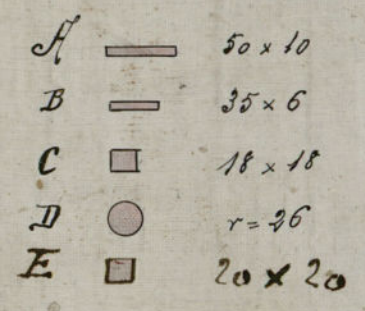 A 50 x 10
B 35 x 6
C 18 x 18
D r = 26
E 20 x 20